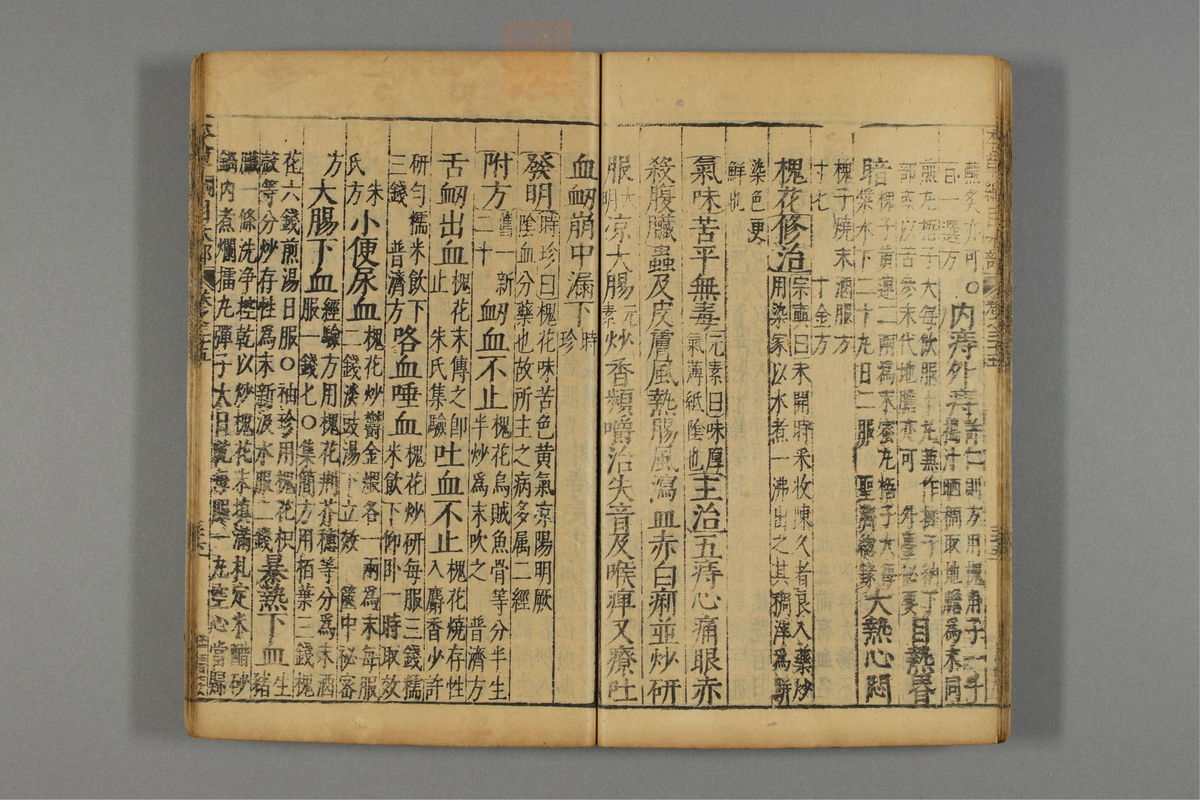 蘸炙亦可○內痔外痔許仁則方用槐角子一斗
搗汁晒稠取地膽為末同
煎丸梧子大每飲服十丸兼作挺子納下
部或以苦參末代地膽亦可外臺秘要目熱昏
暗槐子黃連二兩為末蜜丸梧子大每
漿水下二十丸日二服聖濟總錄大熱心悶
槐子燒末酒服方
寸匕千金方
槐花修治宗奭曰未開時采收陳久者良入藥炒
用染家以水煮一沸出之其稠滓為餅
染色更
鮮也
氣味苦平無毒元素曰味厚
氣薄純陰也主治五痔心痛眼赤
殺腹臟蟲及皮膚風熱腸風瀉血赤白痢並炒研
服大明涼大腸元素炒香頻嚼治失音及喉痺又療吐
血衂崩中漏下時珍
發明時珍曰槐花味苦色黃氣凉陽明厥
陰血分藥也故所主之病多屬二經
附方舊一新
二十衂血不止槐花烏賊魚骨等分半生
半炒為末吹之普濟方
舌衂出血槐花末傅之即
止朱氏集驗吐血不止槐花燒存性
入麝香少許
研勻糯米飲下
三錢普濟方咯血唾血槐花炒研每服三錢糯
米飲下仰卧一時取效
朱
氏方小便尿血槐花炒鬱金煨各一兩為末每服
二錢淡豉湯下立效篋中秘寶
方大腸下血經驗方用槐花荊芥穗等分為末酒
服一錢匕○集簡方用柏葉三錢槐
花六錢煎湯日服○袖珍用槐花枳
殼等分炒存性為末新汲水服二錢暴熱下血生
豬
臟一條洗净控乾以炒槐花末填滿扎定米醋砂
鍋内煮爛擂丸彈子大日乾每服一丸空心當歸